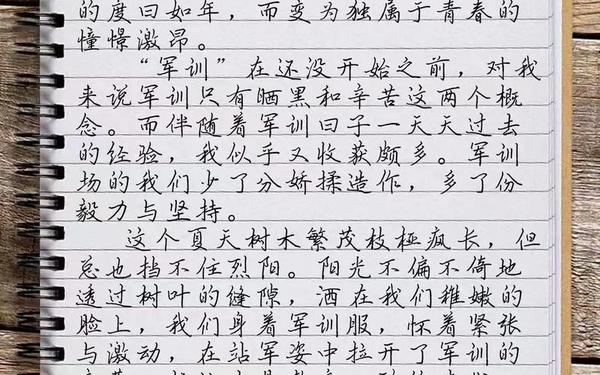 的度日如年，而变为独属于青春的
憧憬激昂。
“军训”在还没开始之前，对我
来说军训只有晒黑和辛苦这两个概
念。而伴随着军训日子一天天过去
的经验，我似乎又收获颇多。军训
场的我们少了分娇揉造作，多了份
毅力与坚持。
这个夏天树木繁茂枝桠疯长，但
总也挡不住烈阳。阳光不偏不倚地
透过树叶的缝隙，洒在我们稚嫩的
脸上，我们身着军训服，怀着紧张
与激动，在站军姿中拉开了军训的